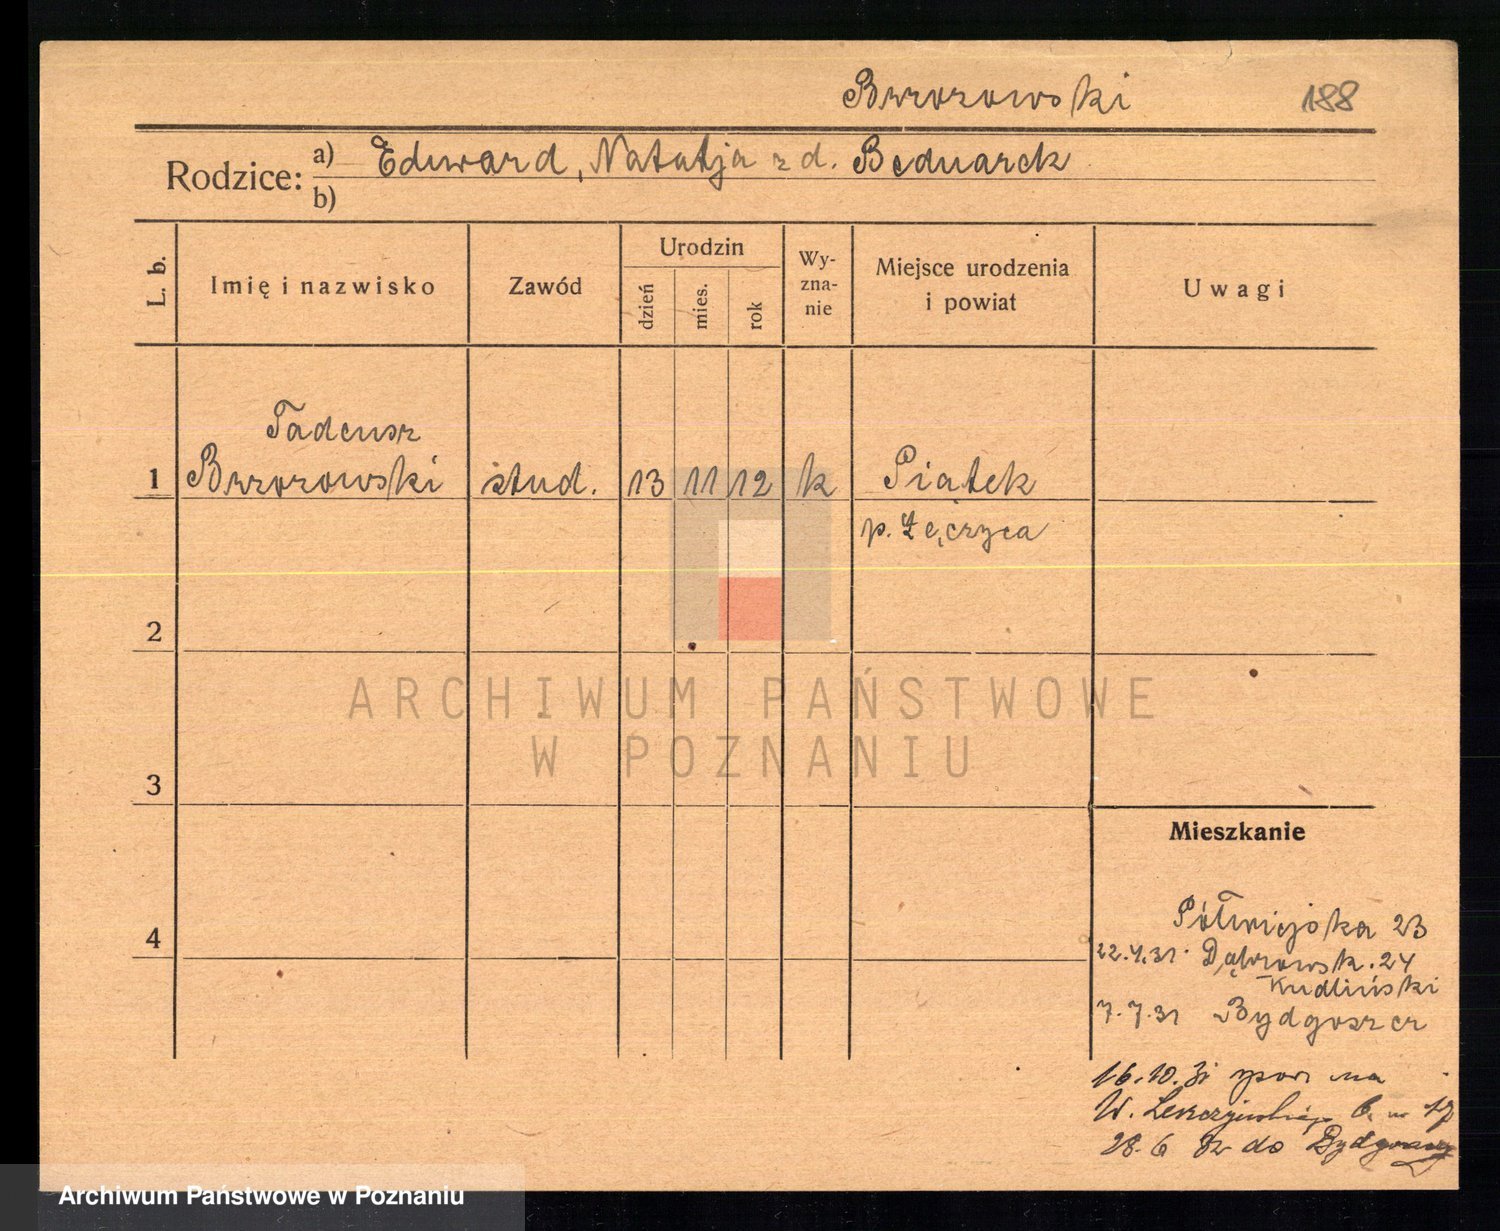 Brzozowski 188
Rodzice: a) Edward, Natalja z d. Bednarek
b)
L. b.
Imię i nazwisko
Zawód
Urodzin
dzień
mies.
rok
Wy-
zna-
nie
Miejsce urodzenia
i powiat
Uwagi
Tadeusz
1 Brzozowski stud. 13 11 12 k Piątek
p. Łęczyca
2
ARCHIWUM PAŃSTWOWE
W POZNANIU
3
Mieszkanie
4
Półwiejska 23
22.4.31. Dąbrowsk. 24
Kudliński
7.7.31 Bydgoszcz
16.10.31 na
W. Leszczyńskiego 6 17
28.6 32 do Bydgoszczy
Archiwum Państwowe w Poznaniu